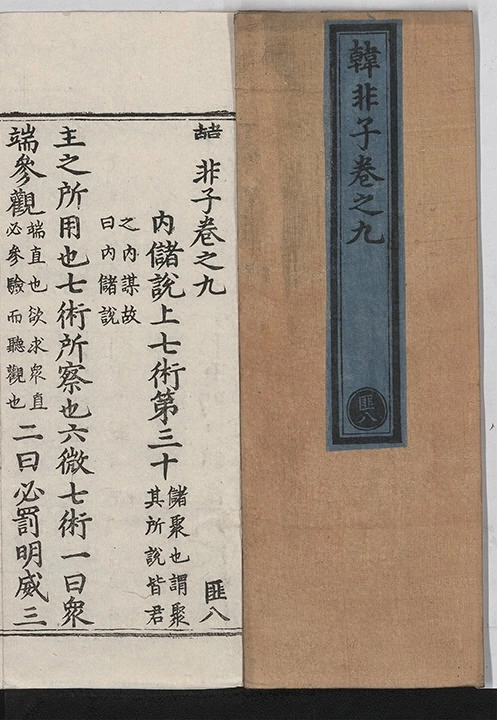 韓非子卷之九
匪八
非子卷之九 匪八
內儲說上七術第三十
儲聚也謂聚
其所說皆君
之內謀故
曰內儲說
主之所用也七術所察也六微七術一曰衆
端參觀
端直也欲求衆直
必參驗而聽觀也
二曰必罰明威三